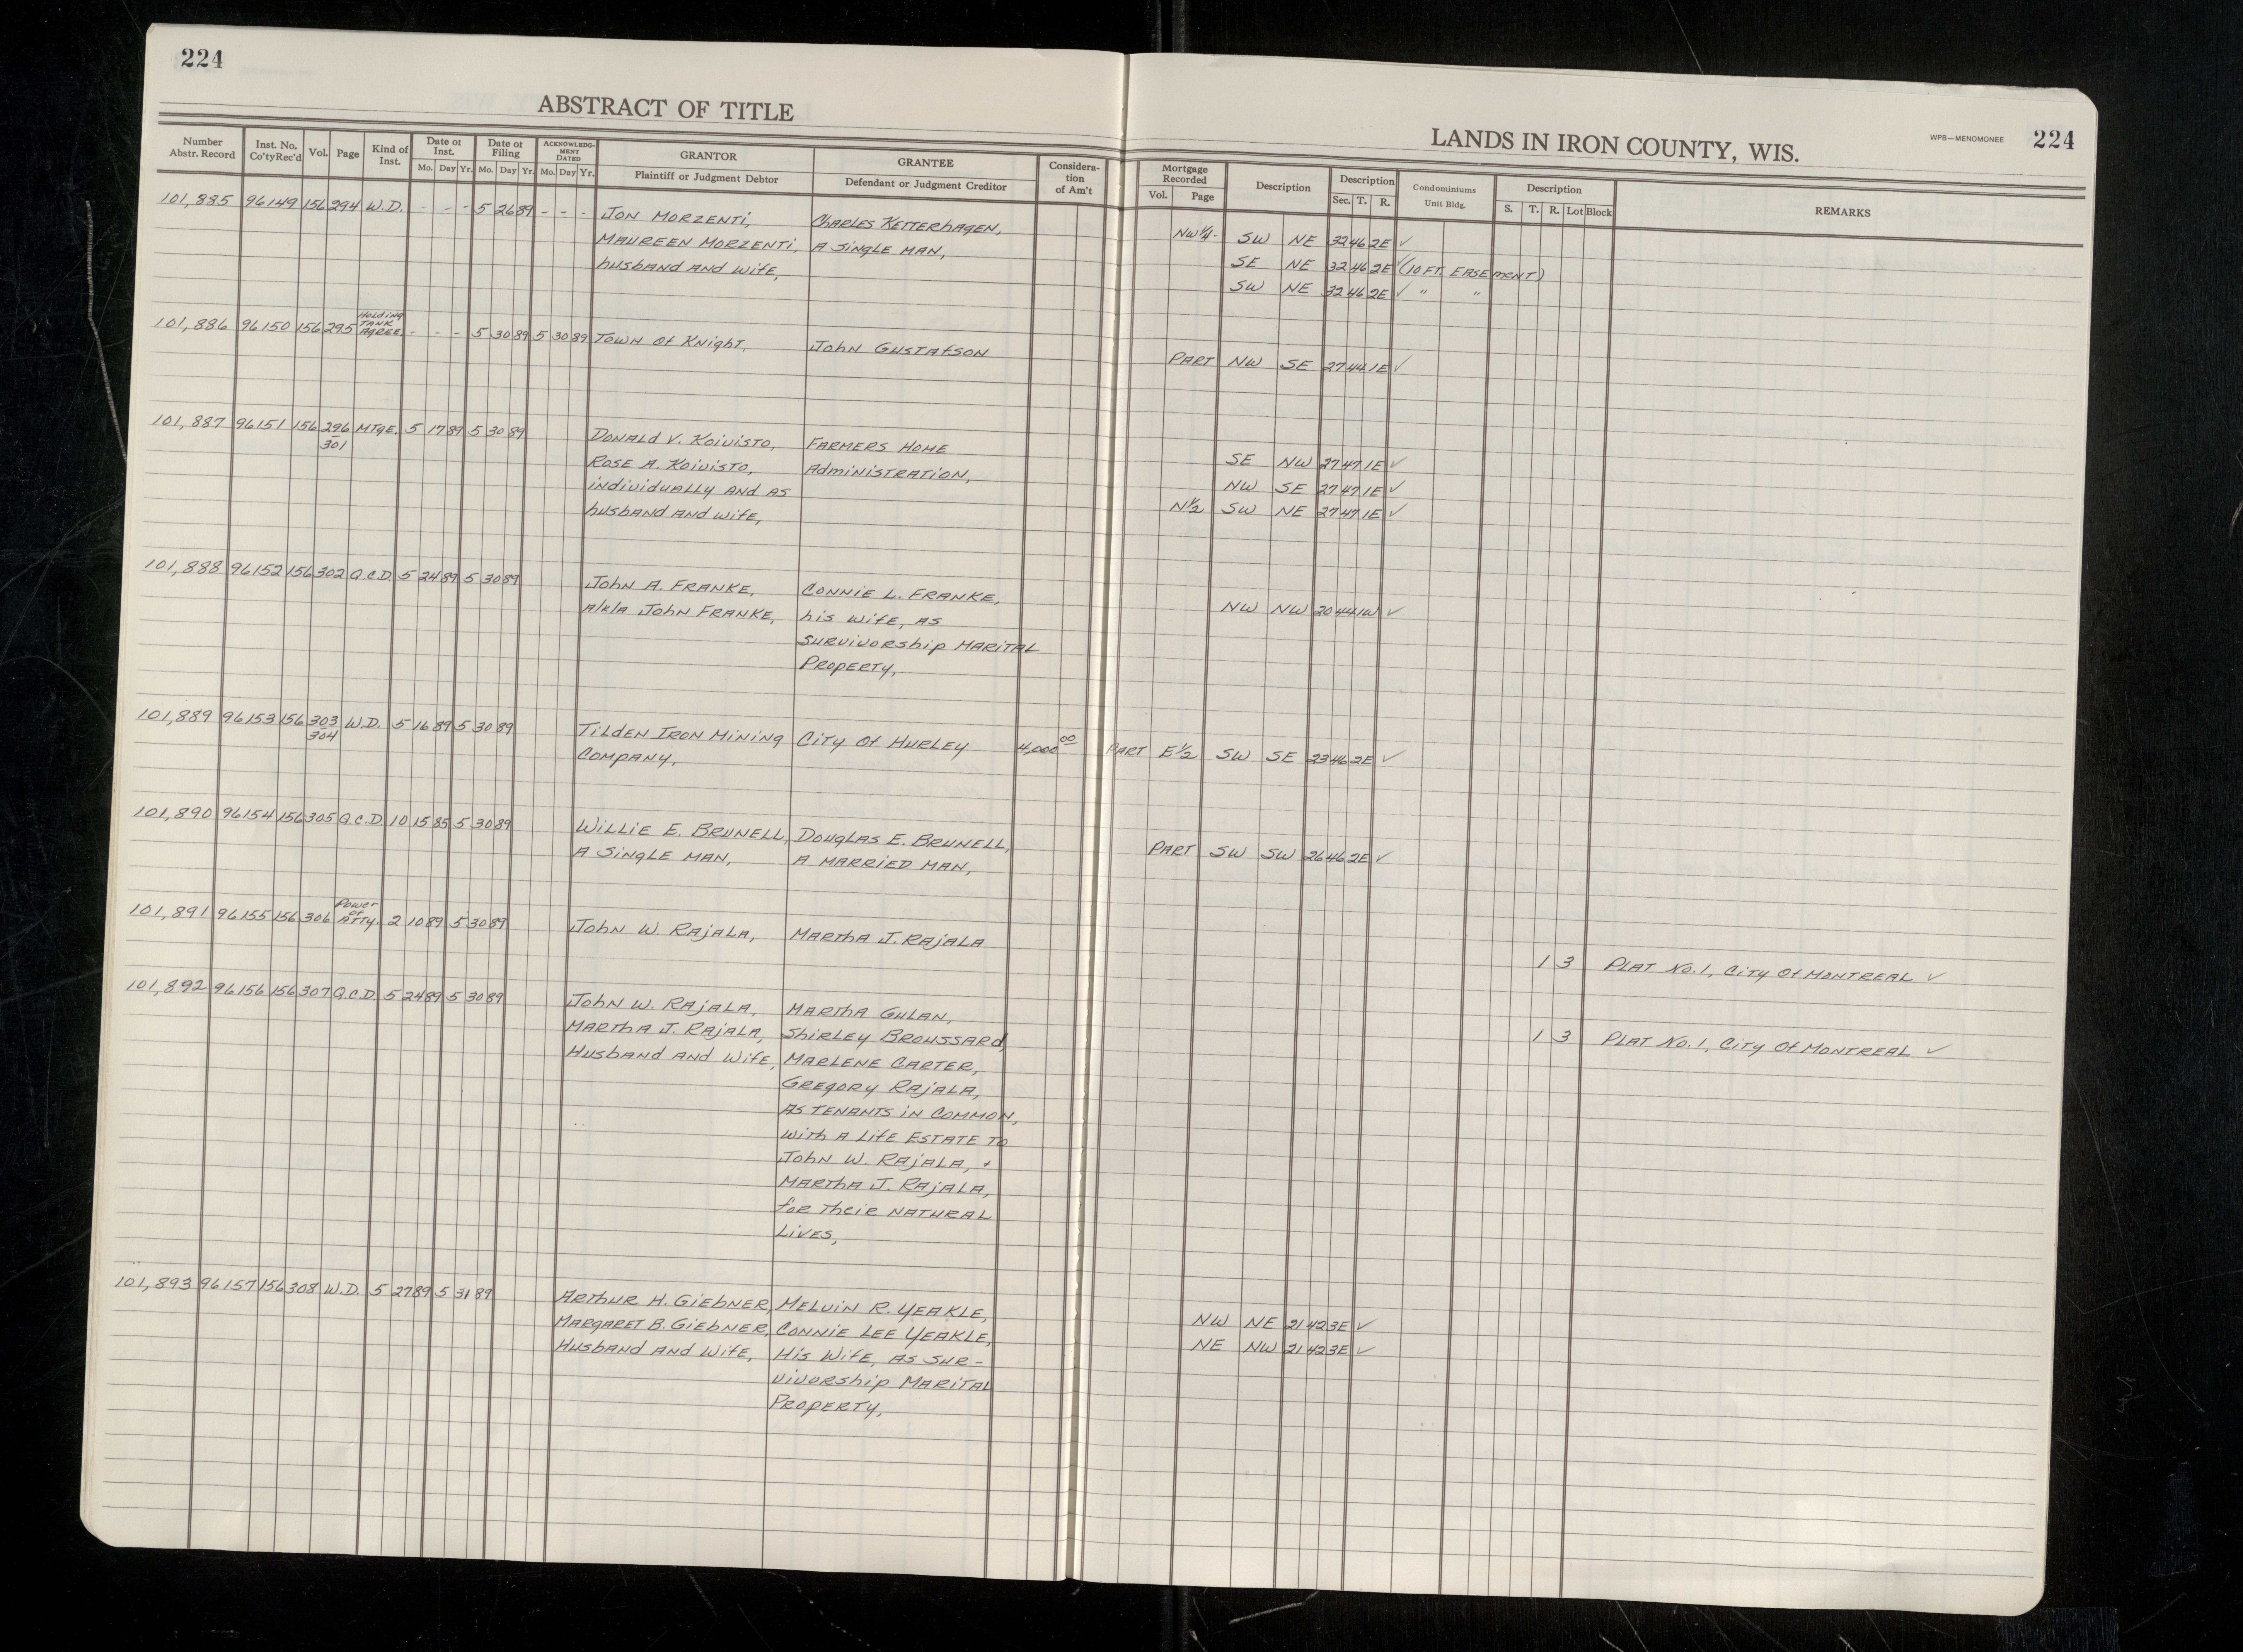 224
ABSTRACT OF TITLE
Number Abstr. Record | Inst. No. Co'tyRec'd | Vol. | Page | Kind of Inst. | Date of Inst. Mo. Day Yr. | Date of Filing Mo. Day Yr. | ACKNOWLEDG-MENT DATED Mo. Day Yr. | GRANTOR Plaintiff or Judgment Debtor | GRANTEE Defendant or Judgment Creditor | Considera-tion of Am't
101,885 96149 156 294 W.D. - - - 5 26 89 - - - Jon Morzenti, Charles Ketterhagen,
Maureen Morzenti, A Single Man,
husband and wife,
101,886 96150 156 295 Holding Tank Agree. - - - 5 30 89 5 30 89 Town of Knight, John Gustafson
101,887 96151 156 296-301 MTge. 5 17 89 5 30 89 Donald V. Koivisto, Farmers Home
Rose A. Koivisto, Administration,
individually and as
husband and wife,
101,888 96152 156 302 Q.C.D. 5 24 89 5 30 89 John A. Franke, Connie L. Franke,
a/k/a John Franke, his wife, as
survivorship marital
property,
101,889 96153 156 303-304 W.D. 5 16 89 5 30 89 Tilden Iron Mining City of Hurley 4,000 00
Company,
101,890 96154 156 305 Q.C.D. 10 15 85 5 30 89 Willie E. Brunell, Douglas E. Brunell,
A Single Man, A Married Man,
101,891 96155 156 306 Power of Atty. 2 10 89 5 30 89 John W. Rajala, Martha J. Rajala
101,892 96156 156 307 Q.C.D. 5 24 89 5 30 89 John W. Rajala, Martha Gulan,
Martha J. Rajala, Shirley Broussard,
Husband and Wife, Marlene Carter,
Gregory Rajala,
as tenants in common,
with a life estate to
John W. Rajala, +
Martha J. Rajala,
for their natural
lives,
101,893 96157 156 308 W.D. 5 27 89 5 31 89 Arthur H. Giebner, Melvin R. Yeakle,
Margaret B. Giebner, Connie Lee Yeakle,
Husband and Wife, His Wife, as sur-
vivorship marital
property,
LANDS IN IRON COUNTY, WIS.
WPB—MENOMONEE
224
Mortgage Recorded Vol. Page | Description | Description Sec. T. R. | Condominiums Unit Bldg. | Description S. T. R. Lot Block | REMARKS
NW¼- SW NE 32 46 2E ✓
SE NE 32 46 2E ✓ (10 FT. EASEMENT)
SW NE 32 46 2E ✓ " "
PART NW SE 27 44 1E ✓
SE NW 27 47 1E ✓
NW SE 27 47 1E ✓
N½ SW NE 27 47 1E ✓
NW NW 20 44 1W ✓
PART E½ SW SE 23 46 2E ✓
PART SW SW 26 46 2E ✓
1 3 PLAT No. 1, City of Montreal ✓
1 3 PLAT No. 1, City of Montreal ✓
NW NE 21 42 3E ✓
NE NW 21 42 3E ✓